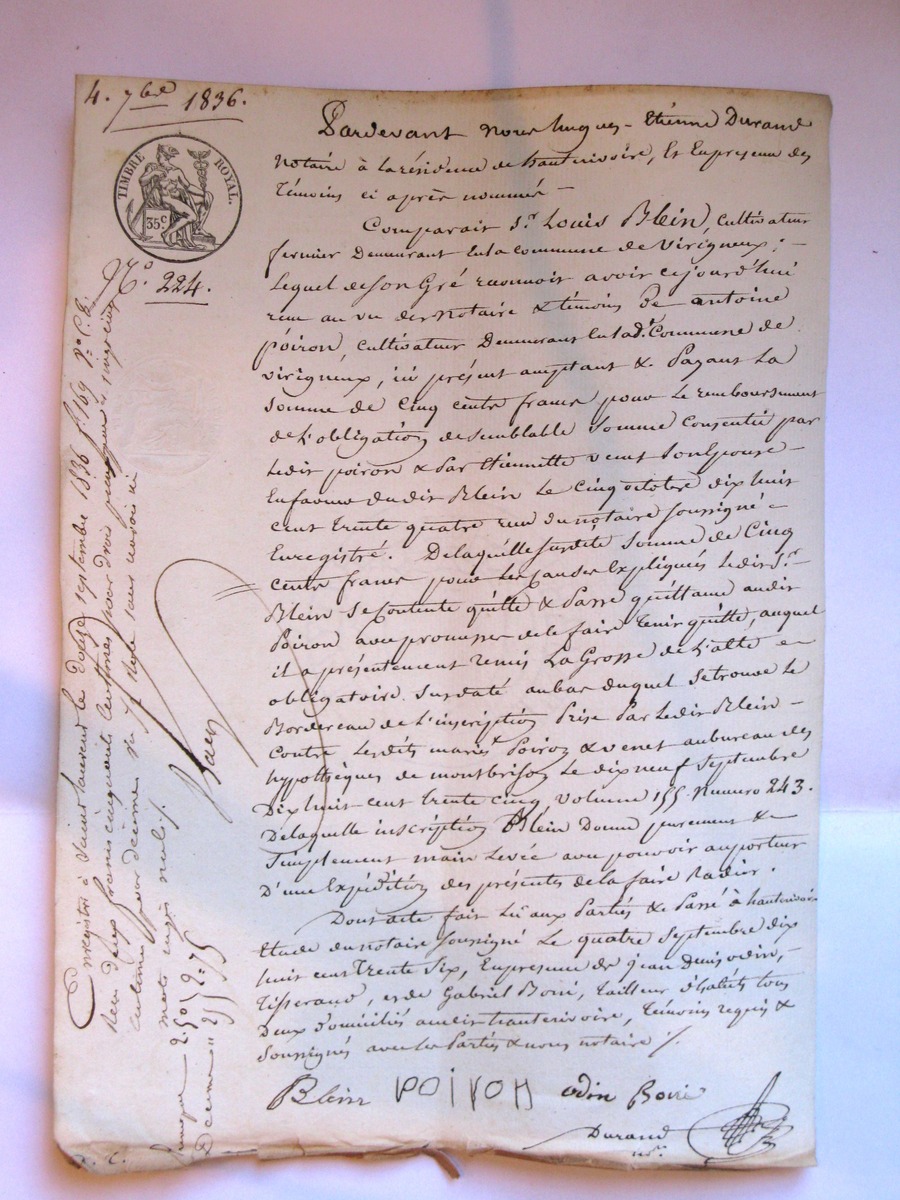 4. 7bre 1836.
TIMBRE ROYAL.
35c.
N.o 224.
Pardevant nous hugues-Etienne Durand
notaire à la résidence de hauterivoire, Et En presence des
témoins ci après nommés –
Comparait Sr. Louis Blein, cultivateur
fermier Demeurant En la commune de Virigneux ; –
Lequel de son Gré reconnoit avoir cejourd'hui
recu au vu des notaire & témoins De antoine
poiron, cultivateur Demeurant En lad.e Commune de
virigneux, ici présent acceptant & Payant La
somme de Cinq cents francs pour Le remboursement
de L'obligation de semblable somme consentie par
Ledit poiron & Par Etiennette venet son Epouse –
En faveur dudit Blein Le Cinq octobre dix huit
cent trente quatre recu du notaire soussigné –
Enregistré. De laquelle susdite somme de Cinq
cents francs pour Les causes Expliquées Ledit Sr.
Blein se contente quitte & Passe quittance audit
Poiron avec promesse de le faire tenir quitte, auquel
il a présentement remis La Grosse de L'acte –
obligatoire susdaté au bas duquel se trouve Le
Bordereau de L'inscription Prise Par Ledit Blein –
contre Lesdits mariés Poiron & venet au bureau des
hypothèques de montbrison Le dix neuf Septembre
Dix huit cent trente cinq, volume 155. Numero 243.
De laquelle inscription Blein Donne purement &
simplement main Levée avec pouvoir au porteur
D'une Expédition des présentes de la faire Radier.
Dont acte fait Lu aux Parties & Passé à hauterivoire
Etude du notaire soussigné Le quatre Septembre dix
huit cent Trente Six, En presence de jean Denis odin,
Tisserand, et de Gabriel Boiri, tailleur d'habits tous
Deux domiciliés audit hauterivoire, témoins requis &
soussignés avec Les Parties & nous notaire /.
Blein POIRON odin Boiri
Durand
nre.
Enregistré à Saint laurent le douze septembre 1836 f.o 169 v.o C. 8.
Reçu deux francs cinquante centimes pour droit
centimes pour décime
mots rayés nuls.
2. 50 } 2=75
Decime " 25